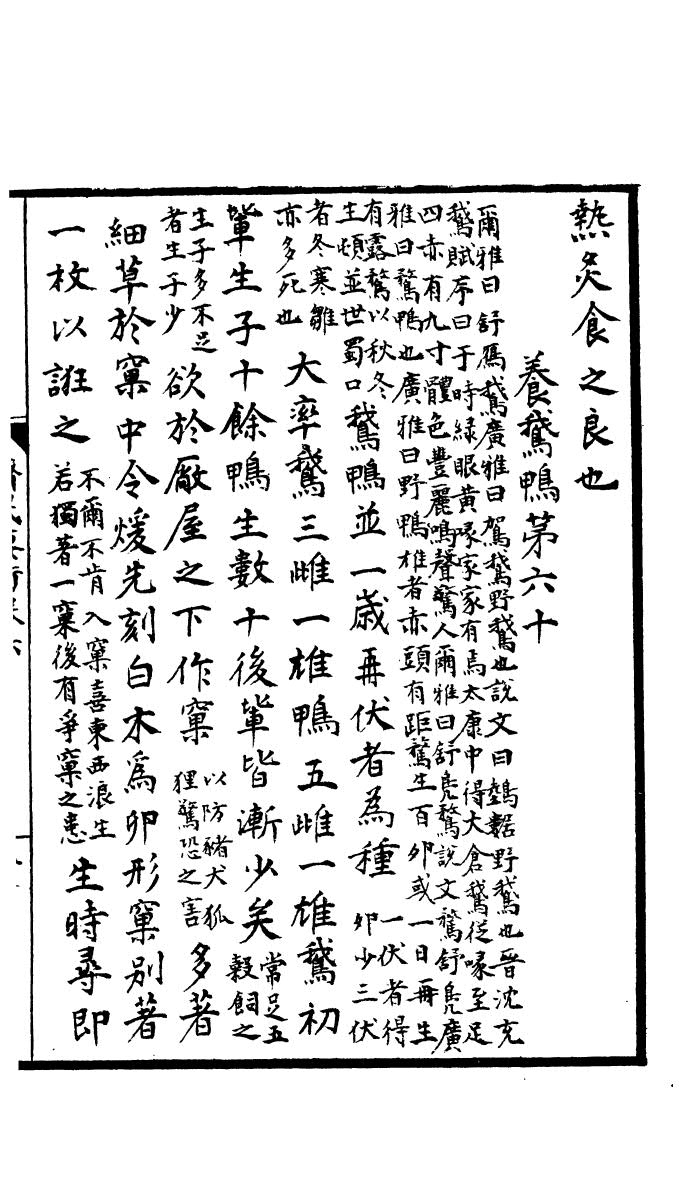 熱炙食之良也
養鵝鴨苐六十
爾雅曰舒鴈鵝廣雅曰鴐鵝野鵝也說文曰鵱鷜野鵝也晉沈充
鵝賦序曰于時綠眼黃喙家家有焉太康中得大倉鵝從喙至足
四赤有九寸體色豐麗鳴聲驚人爾雅曰舒鳧鶩說文鶩舒鳧廣
雅曰鶩鴨也廣雅曰野鴨雄者赤頭有距鶩生百卵或一日再生
有露鶩以秋冬
生頓並世蜀口
鵝鴨並一歲再伏者為種
一伏者得
卵少三伏
者冬寒雛
亦多死也
大率鵝三雌一雄鴨五雌一雄鵝初
輩生子十餘鴨生數十後輩皆漸少矣
常足五
穀飼之
生子多不足
者生子少
欲於厰屋之下作窠
以防豬犬狐
狸驚恐之害
多著
細草於窠中令煖先刻白木為卵形窠別著
一枚以誑之
不爾不肯入窠喜東西浪生
若獨著一窠後有爭窠之患
生時尋即